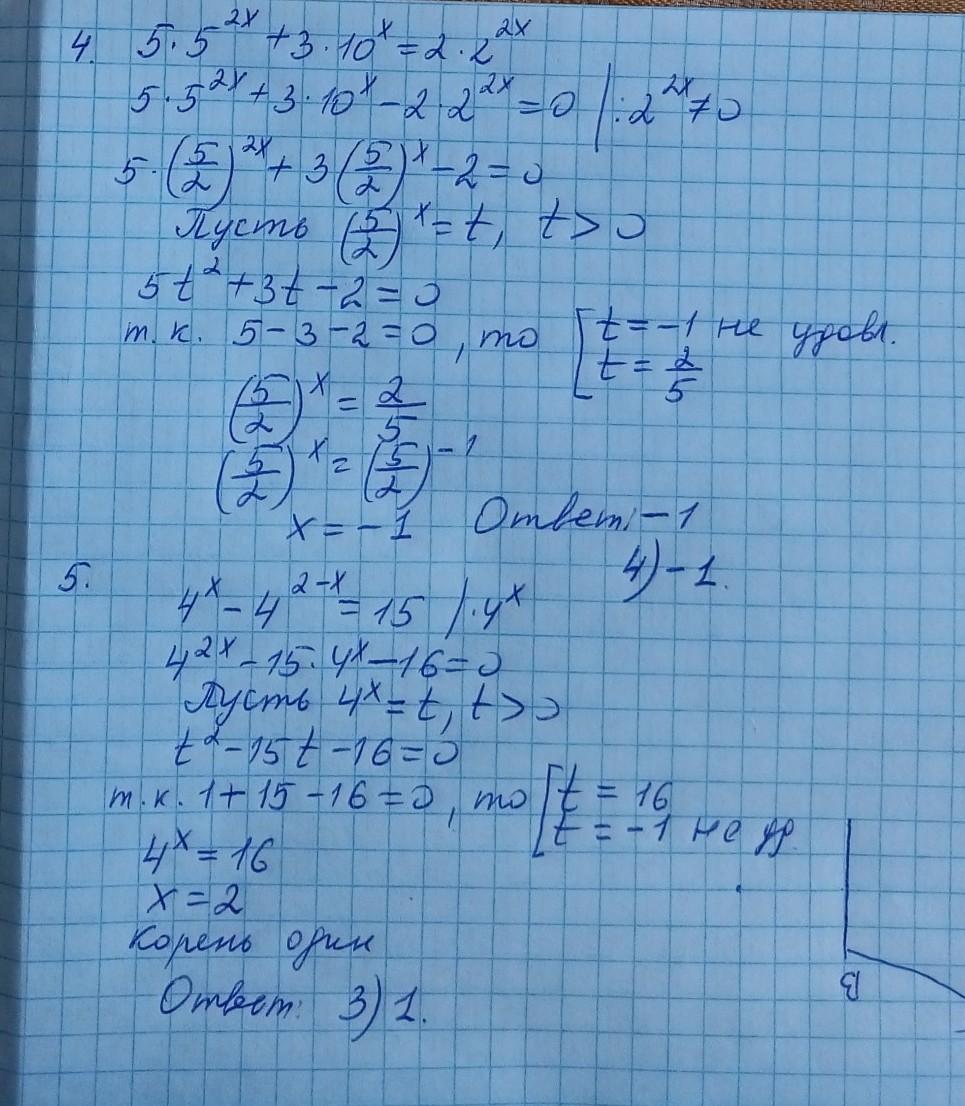 4. 5·5^{2x} + 3·10^x = 2·2^{2x}
5·5^{2x} + 3·10^x - 2·2^{2x} = 0 | : 2^{2x} ≠ 0
5·(5/2)^{2x} + 3(5/2)^x - 2 = 0
Пусть (5/2)^x = t, t > 0
5t^2 + 3t - 2 = 0
т.к. 5 - 3 - 2 = 0, то [ t = -1 не удовл.
t = 2/5
(5/2)^x = 2/5
(5/2)^x = (5/2)^{-1}
x = -1 Ответ: -1
4) -1.
5.
4^x - 4^{2-x} = 15 | · 4^x
4^{2x} - 15·4^x - 16 = 0
Пусть 4^x = t, t > 0
t^2 - 15t - 16 = 0
т.к. 1 + 15 - 16 = 0, то [ t = 16
t = -1 не уд.
4^x = 16
x = 2
Корень один
Ответ: 3) 1.
B